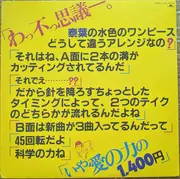 わっ不っ思議ー。
泰葉の水色のワンピース
どうして違うアレンジなの?
「それはね、A面に2本の溝が
カッティングされてるんだ」
「それでえ……??」
「だから針を降ろすちょっとした
タイミングによって、2つのテイク
のどちらかが流れるんだよね」
「B面は新曲が3曲入ってるんだって」
「45回転だよ」
「科学の力ね」
「いや愛の力の
1,400円」